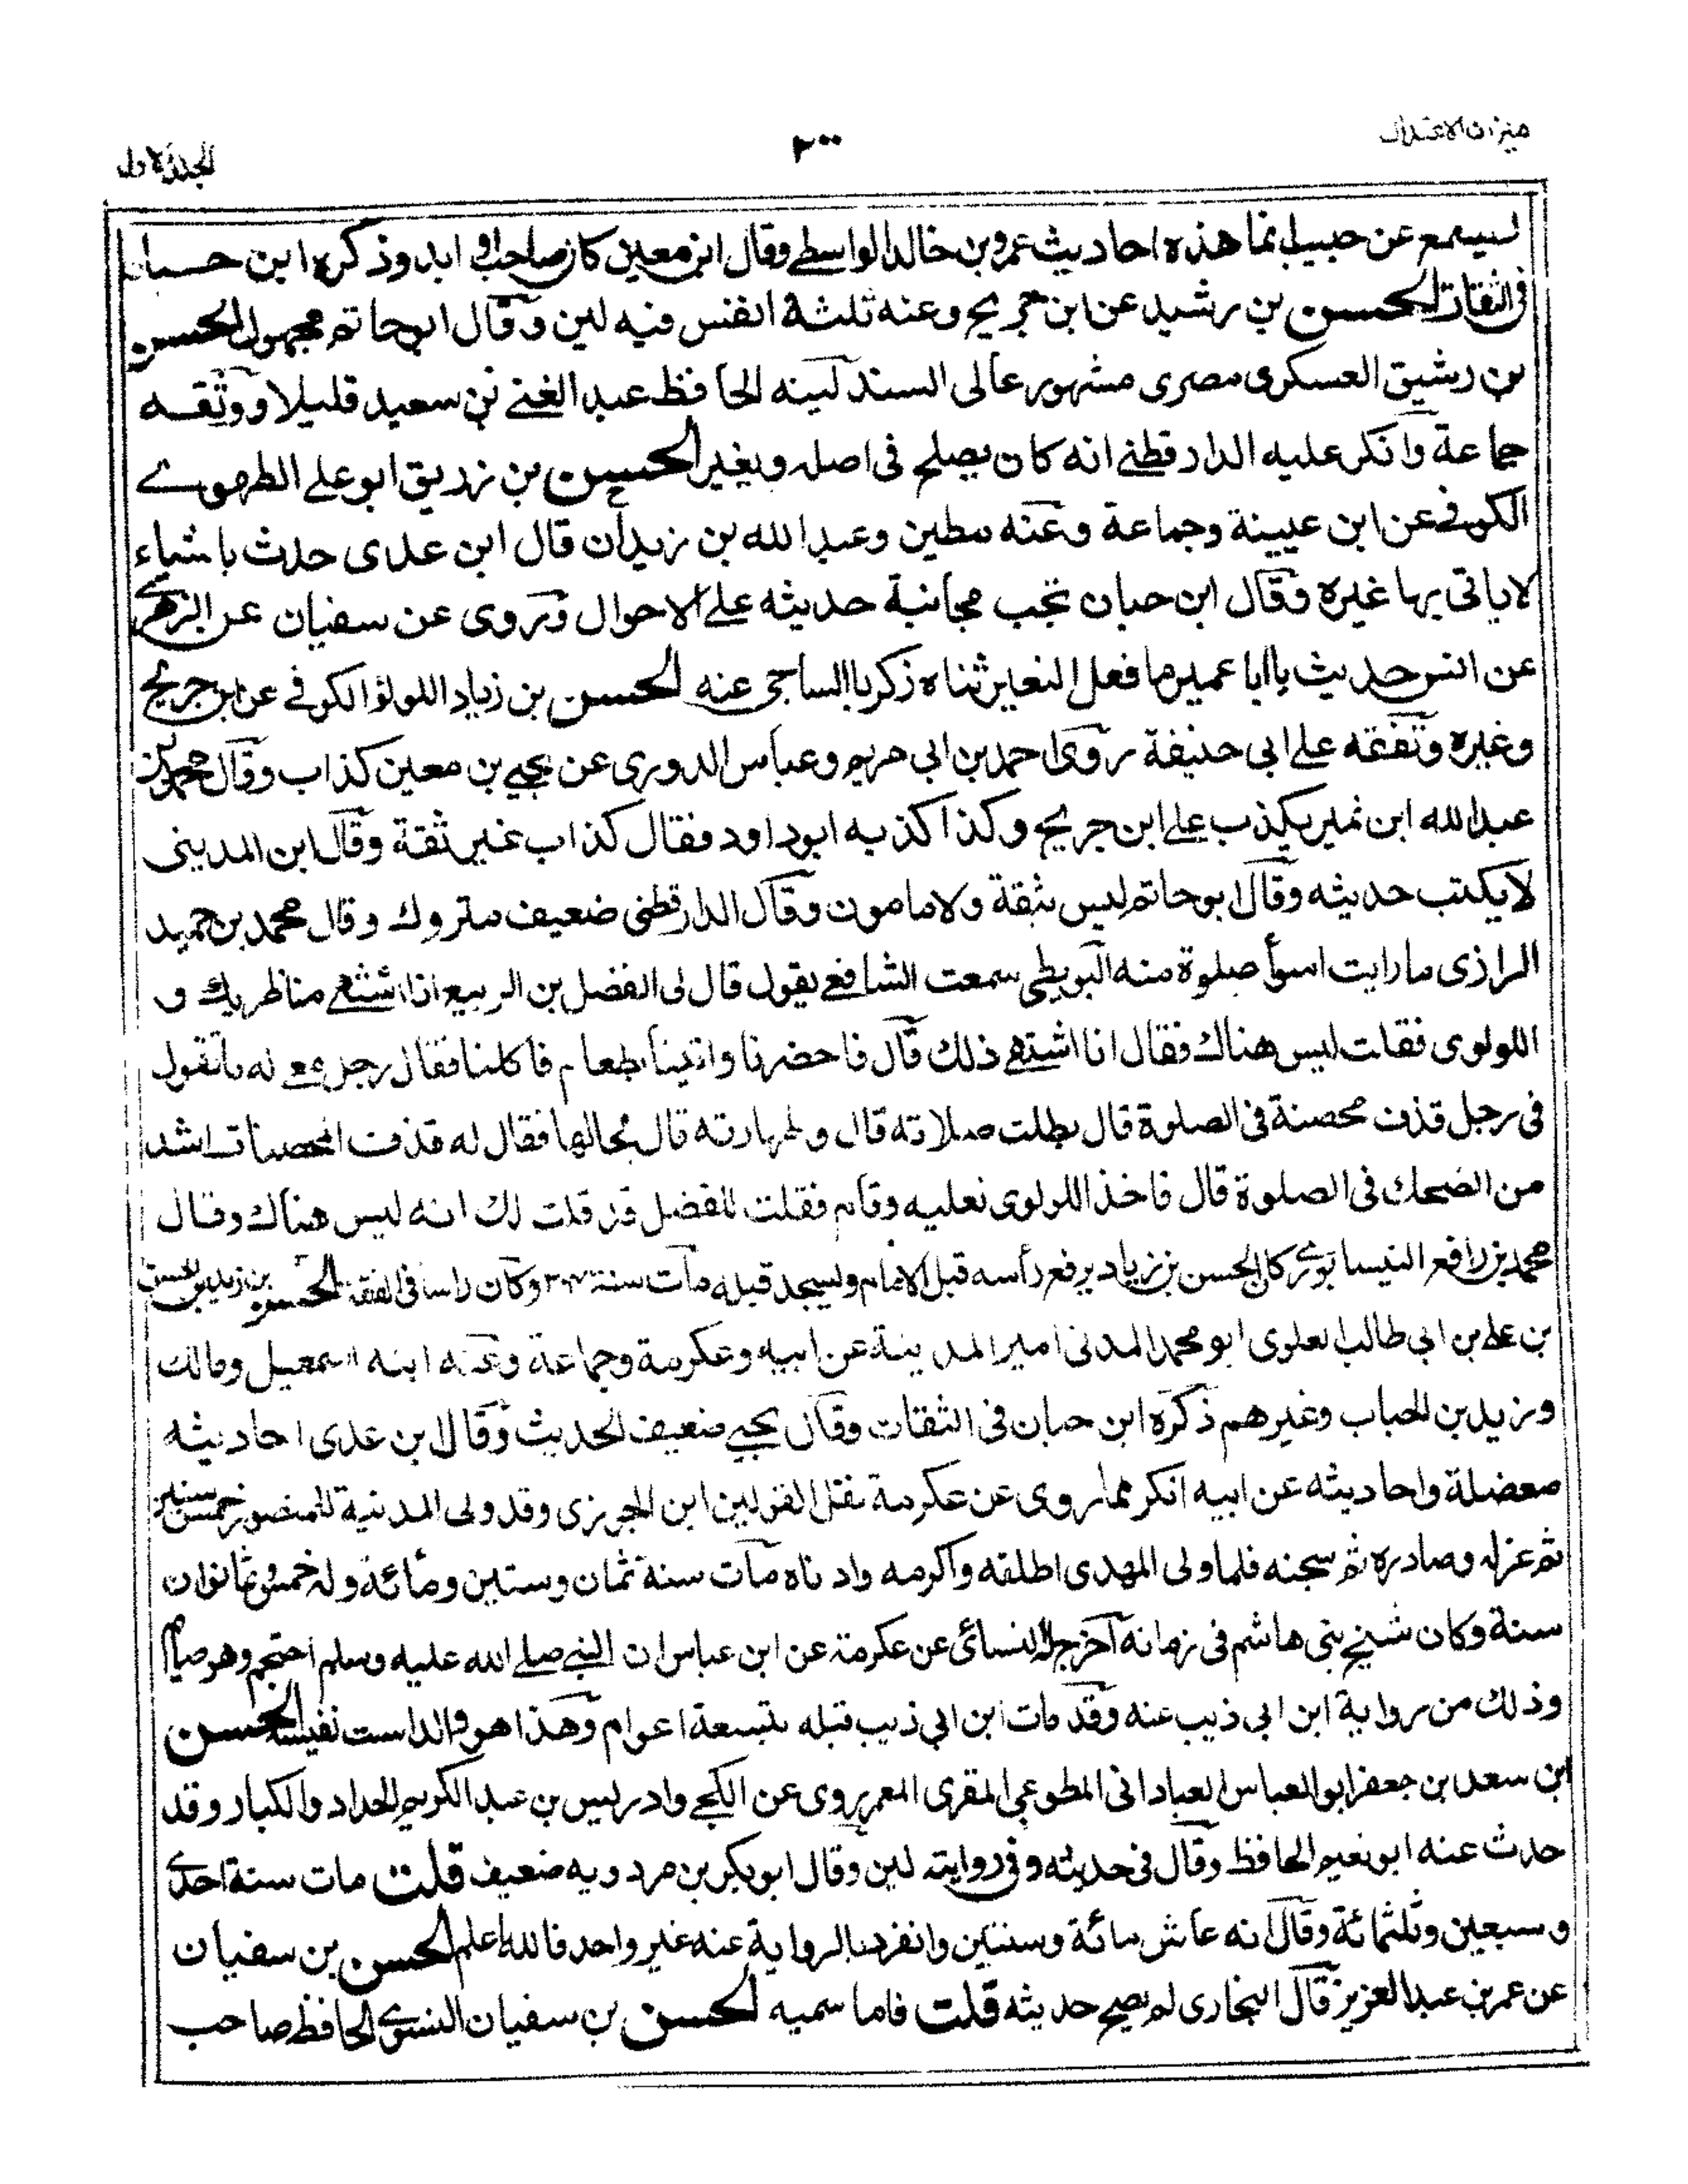 ميزان الاعتدال
٢٠٠
الجلد الاول
لم يسمع عن حبيب انما هذه احاديث عمرو بن خالد الواسطے وقال ابن معين كان صاحب اوابد وذكره ابن حبان
فى الثقات الحسن بن رشيد عن ابن جريج وعنه ثلثة انفس فيه لين وقال ابو حاتم مجهول الحسن
بن رشيق العسكرى مصرى مشهور عالى السند لينه الحافظ عبد الغنے بن سعيد قليلا ووثقه
جماعة وانكر عليه الدارقطنے انه كان يصلح فى اصله ويغير الحسين بن زريق ابو علے الطهوے
الكوفے عن ابن عيينة وجماعة وعنه مطين وعبد الله بن زيدان قال ابن عدى حدث باشياء
لاياتى بها غيره وقال ابن حبان تجب مجانبة حديثه علے الاحوال وروى عن سفيان عن الزهرے
عن انس حديث يا ابا عمير ما فعل النغير ثناه زكريا الساجى عنه الحسن بن زياد اللولؤ الكوفے عن ابن جريج
وغيره وتفقه علے ابى حنيفة روى احمد بن ابى مريم وعباس الدورى عن يحيے بن معين كذاب وقال محمد بن
عبد الله ابن نمير يكذب علے ابن جريج وكذا كذبه ابو داود فقال كذاب غير ثقة وقال ابن المدينى
لا يكتب حديثه وقال ابو حاتم ليس بثقة ولا مامون وقال الدارقطنى ضعيف متروك وقال محمد بن حميد
الرازى ما رايت اسوأ صلوة منه البويطى سمعت الشافعے يقول قال لى الفضل بن الربيع انا اشتهے مناظريك و
اللولوى فقلت ليس هناك فقال انا اشتهے ذلك قال فاحضرنا واتينا بطعام فاكلنا فقال رجل معے له ما تقول
فى رجل قذف محصنة فى الصلوة قال بطلت صلاته قال وطهارته قال بحالها فقال له قذف المحصنات اشد
من الضحك فى الصلوة قال فاخذ اللولوى نعليه وقام فقلت للفضل قد قلت لك انه ليس هناك وقال
محمد بن رافع النيسابورے كان الحسن بن زياد يرفع رأسه قبل الامام ويسجد قبله مات سنة ٢٠٤ وكان راسا فى الفقه الحسن بن زيد بن الحسن
بن علے بن ابى طالب العلوى ابو محمد المدنى امير المدينة عن ابيه وعكرمة وجماعة وعنه ابنه اسمعيل ومالك
وزيد بن الحباب وغيرهم ذكره ابن حبان فى الثقات وقال يحيے ضعيف الحديث وقال ابن عدى احاديثه
معضلة واحاديثه عن ابيه انكر مما روى عن عكرمة نقل القولين ابن الجوزى وقد ولى المدينة للمنصور خمس سنين
ثم عزله وصادره ثم سجنه فلما ولى المهدى اطلقه واكرمه وادناه مات سنة ثمان وستين ومائة وله خمس وثمانون
سنة وكان شيخ بنى هاشم فى زمانه اخرج له النسائى عن عكرمة عن ابن عباس ان النبے صلے الله عليه وسلم احتجم وهو صيام
وذلك من رواية ابن ابى ذيب عنه وقد مات ابن ابى ذيب قبله بتسعة اعوام وهذا هو والد الست نفيسة الحسن
ابن سعد بن جعفر ابو العباس العبادانى المطوعى المقرى المعمر روى عن الكجے وادريس بن عبد الكريم الحداد والكبار وقد
حدث عنه ابو نعيم الحافظ وقال فى حديثه وفى روايته لين وقال ابو بكر بن مردويه ضعيف قلت مات سنة احدے
وسبعين وثلثمائة وقال انه عاش مائة وسنتين وانفرد بالرواية عنه غير واحد فالله اعلم الحسن بن سفيان
عن عمر بن عبد العزيز قال البخارى لم يصح حديثه قلت فاما سميه الحسن بن سفيان النسوے الحافظ صاحب